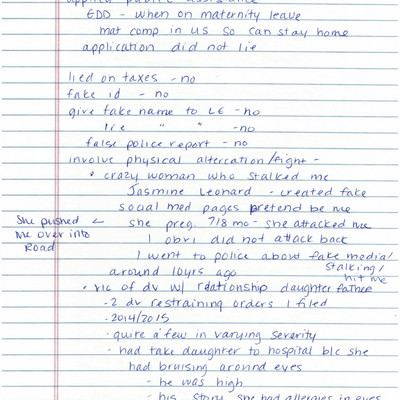 applied public assistance
EDD - when on maternity leave
mat comp in US so can stay home
application did not lie
lied on taxes - no
fake id - no
give fake name to LE - no
lie " " - no
false police report - no
involve physical altercation/fight -
• crazy woman who stalked me
Jasmine Leonard - created fake
social med pages pretend be me
she preg 7/8 mo - she attacked me
She pushed me over into Road
I obvi did not attack back
I went to police about fake media/
stalking/
hit me
around 10yrs ago
• vic of dv w/ relationship daughter father
- 2 dv restraining orders I filed
- 2014/2015
- quite a few in varying severity
- had take daughter to hospital b/c she
had bruising around eyes
- he was high
- his story she had allergies in eyes